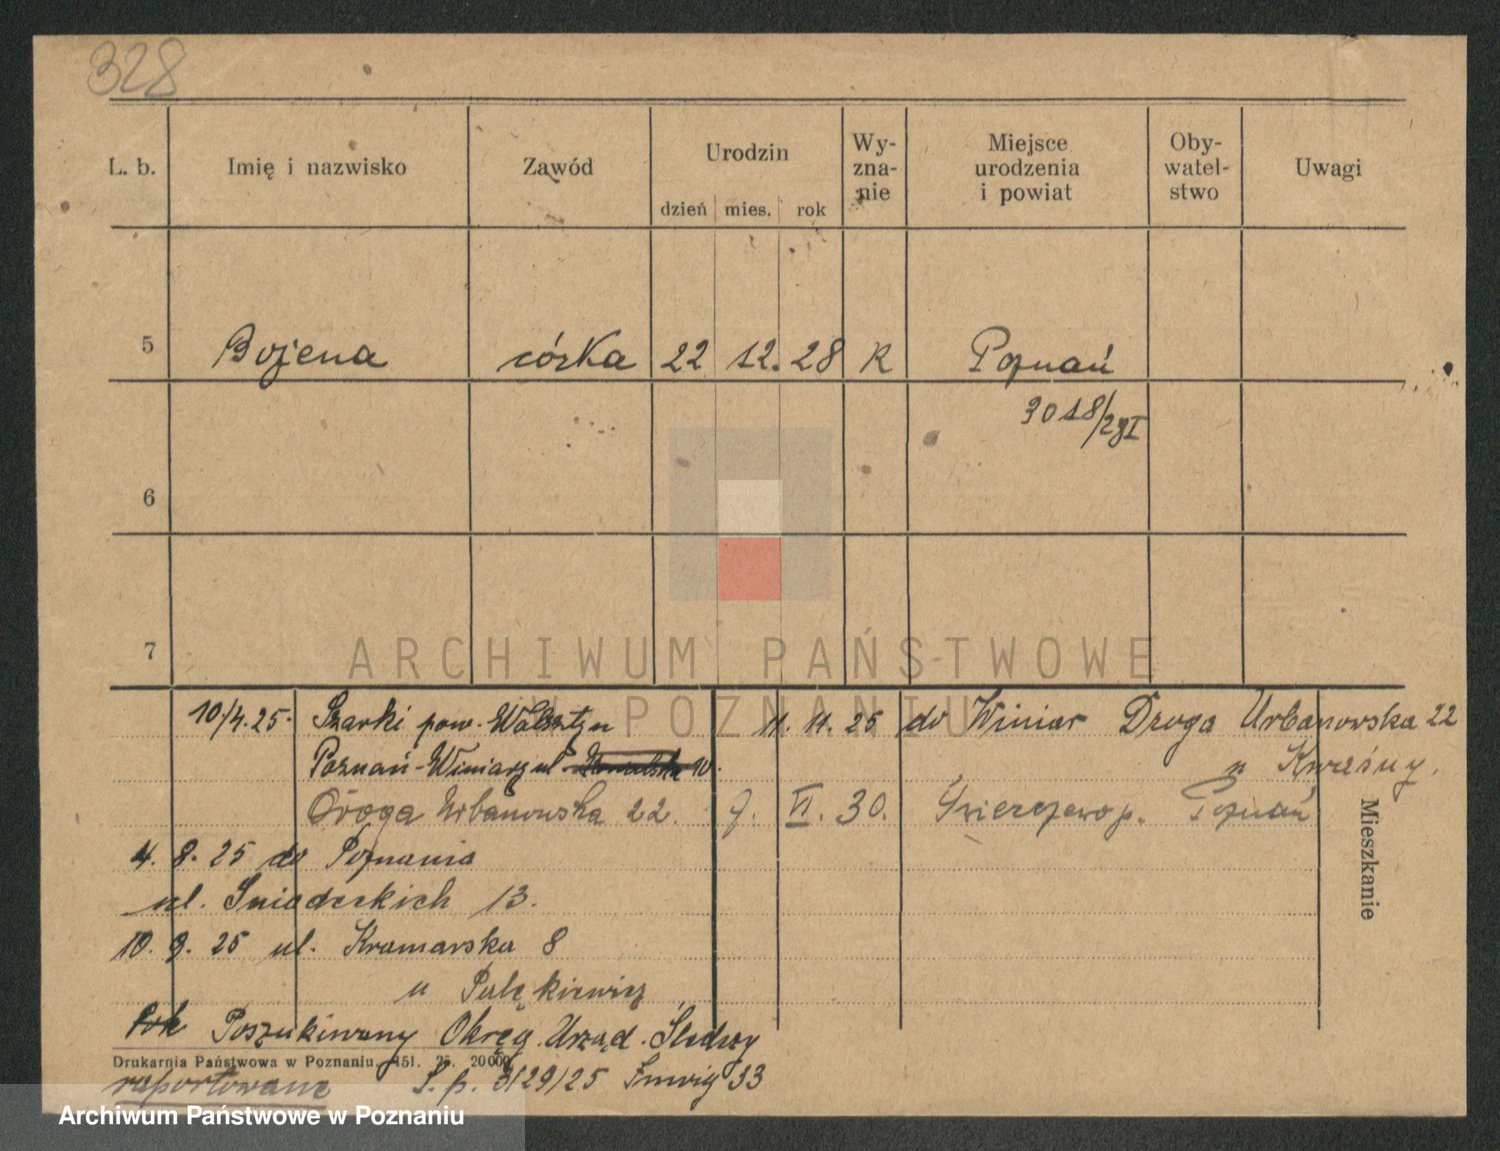 328
L. b. Imię i nazwisko Zawód Urodzin Wy-zna-nie Miejsce urodzenia i powiat Oby-watel-stwo Uwagi
dzień mies. rok
5 Bojena córka 22 12. 28 K Poznań
3018/28I
6
7
ARCHIWUM PAŃSTWOWE
W POZNANIU
10/4.25. Szarki pow. Wolsztyn 11. 11. 25 do Winiar Droga Urbanowska 22
Poznań-Winiary ul 10. u Kwaśny.
Droga Urbanowska 22. 7. VI. 30. p. Poznań
Mieszkanie
4. 8. 25 do Poznania
ul. Śniadeckich 13.
10. 9. 25 ul. Kramarska 8
u
Poszukiwany Okręg. Urząd. Śledczy
Drukarnia Państwowa w Poznaniu. 451. 25. 20000
raportowane L. p. 3129/25 33
Archiwum Państwowe w Poznaniu